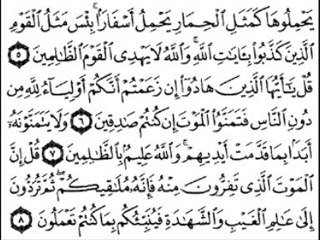 يَحْمِلُوهَا كَمَثَلِ الْحِمَارِ يَحْمِلُ أَسْفَارًا ۚ بِئْسَ مَثَلُ الْقَوْمِ
الَّذِينَ كَذَّبُوا بِـَٔايَاتِ اللَّهِ ۚ وَاللَّهُ لَا يَهْدِى الْقَوْمَ الظَّالِمِينَ ٥
قُلْ يَـٰٓأَيُّهَا الَّذِينَ هَادُوٓا إِن زَعَمْتُمْ أَنَّكُمْ أَوْلِيَآءُ لِلَّهِ مِن
دُونِ النَّاسِ فَتَمَنَّوُا الْمَوْتَ إِن كُنتُمْ صَـٰدِقِينَ ٦ وَلَا يَتَمَنَّوْنَهُۥٓ
أَبَدًۢا بِمَا قَدَّمَتْ أَيْدِيهِمْ ۚ وَاللَّهُ عَلِيمٌۢ بِالظَّـٰلِمِينَ ٧ قُلْ إِنَّ
الْمَوْتَ الَّذِى تَفِرُّونَ مِنْهُ فَإِنَّهُۥ مُلَـٰقِيكُمْ ۖ ثُمَّ تُرَدُّونَ
إِلَىٰ عَـٰلِمِ الْغَيْبِ وَالشَّهَـٰدَةِ فَيُنَبِّئُكُم بِمَا كُنتُمْ تَعْمَلُونَ ٨